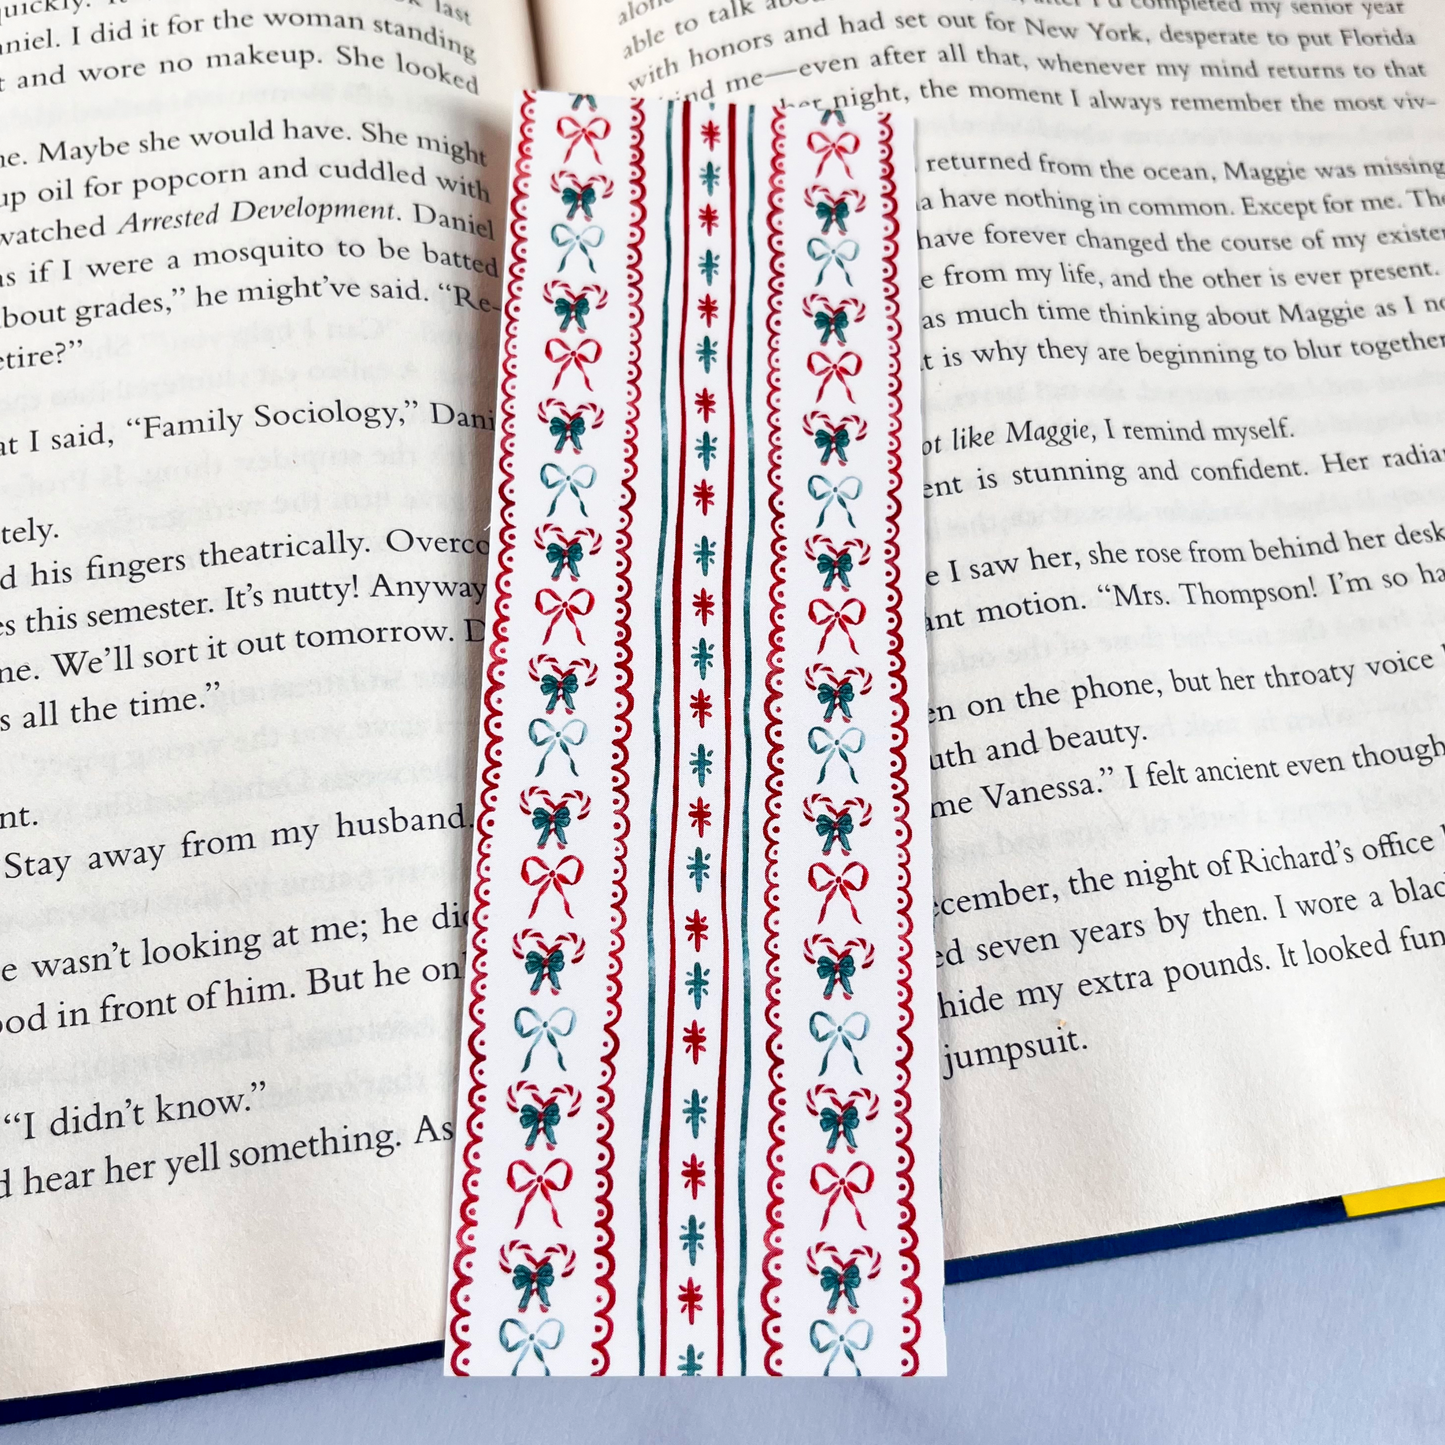 last
niel. I did it for the woman standing
and wore no makeup. She looked
ne. Maybe she would have. She might
up oil for popcorn and cuddled with
watched Arrested Development. Daniel
as if I were a mosquito to be batted
bout grades,” he might’ve said. “Re-
etire?”
at I said, “Family Sociology,” Dani
tely.
d his fingers theatrically. Overco
es this semester. It’s nutty! Anyway
ne. We’ll sort it out tomorrow. D
s all the time.”
nt.
Stay away from my husband.
e wasn’t looking at me; he did
ood in front of him. But he on
“I didn’t know.”
d hear her yell something. As
completed my senior year
able to talk
with honors and had set out for New York, desperate to put Florida
ind me—even after all that, whenever my mind returns to that
night, the moment I always remember the most viv-
returned from the ocean, Maggie was missing
a have nothing in common. Except for me. The
have forever changed the course of my existen
e from my life, and the other is ever present.
as much time thinking about Maggie as I no
t is why they are beginning to blur together
ot like Maggie, I remind myself.
ent is stunning and confident. Her radia
e I saw her, she rose from behind her desk
ant motion. “Mrs. Thompson! I’m so ha
en on the phone, but her throaty voice
uth and beauty.
me Vanessa.” I felt ancient even though
cember, the night of Richard’s office
ed seven years by then. I wore a blac
hide my extra pounds. It looked fun
jumpsuit.